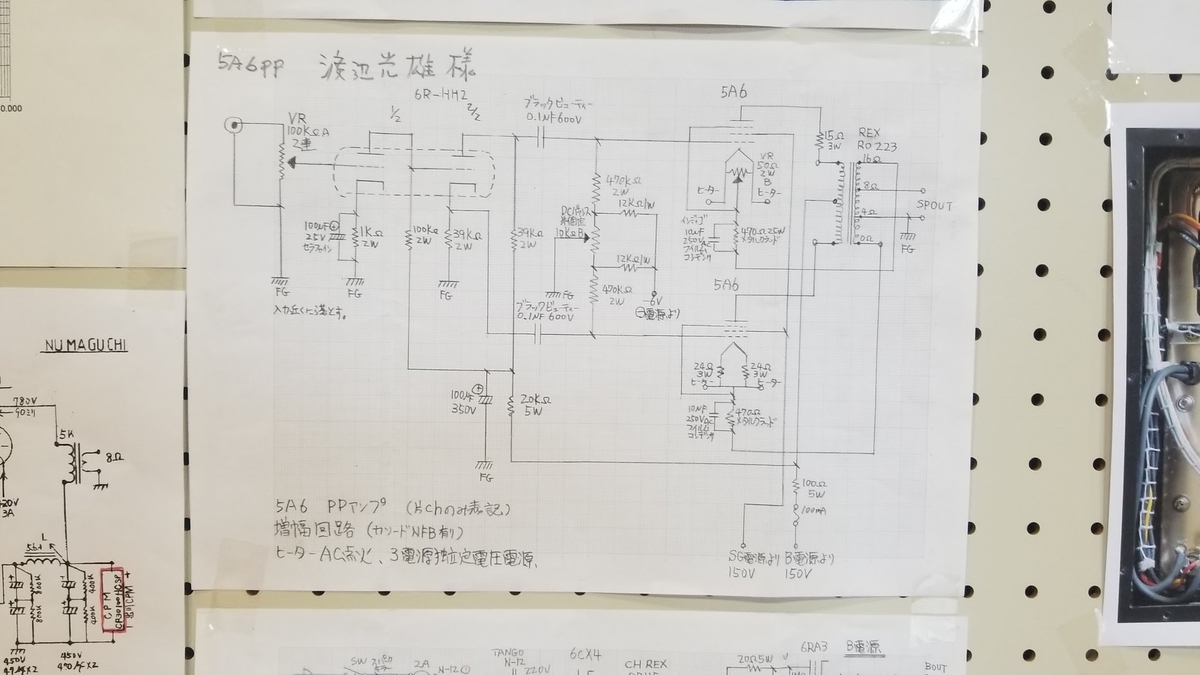 5A6PP 渡辺光雄様
6R-HH2
1/2
2/2
VR
100KΩA
2連
ブラックビューティー
0.1MF 600V
5A6
15Ω
3W
REX
RO 223
16Ω
8Ω
4Ω
0Ω
SPOUT
FG
VR
50Ω
2W
B
ヒーター
ヒーター
470KΩ
2W
12KΩ1W
DCバランス
10KΩB
12KΩ1W
470KΩ
2W
FG
-6V
100μF
25V
1KΩ
2W
100KΩ
2W
39KΩ
2W
39KΩ
2W
10MF
250VAC
フィルム
コンデンサ
470Ω 25W
メタルクラッド
FG
FG
FG
入力近くに落とす。
ブラックビューティー
0.1MF 600V
5A6
24Ω
3W
24Ω
3W
ヒーター
ヒーター
10MF
250VAC
フィルム
コンデンサ
470Ω
メタルクラッド
100μF
350V
20KΩ
5W
FG
100Ω
5W
100mA
SG電源より
150V
B電源より
150V
5A6 PPアンプ (片chのみ表記)
増幅回路 (カソードNFB有り)
ヒーターAC点火、3電源独立定電圧電源、
0.000
NUMAGUCHI
780V
5K
8Ω
3A
L
800K
800K
400K
400K
CPM
450V
450V
470μF×2
SW
2A
N-12
TANGO
N-12
220V
6CX4
CH REX
20Ω5W
6RA3
B電源
BOUT